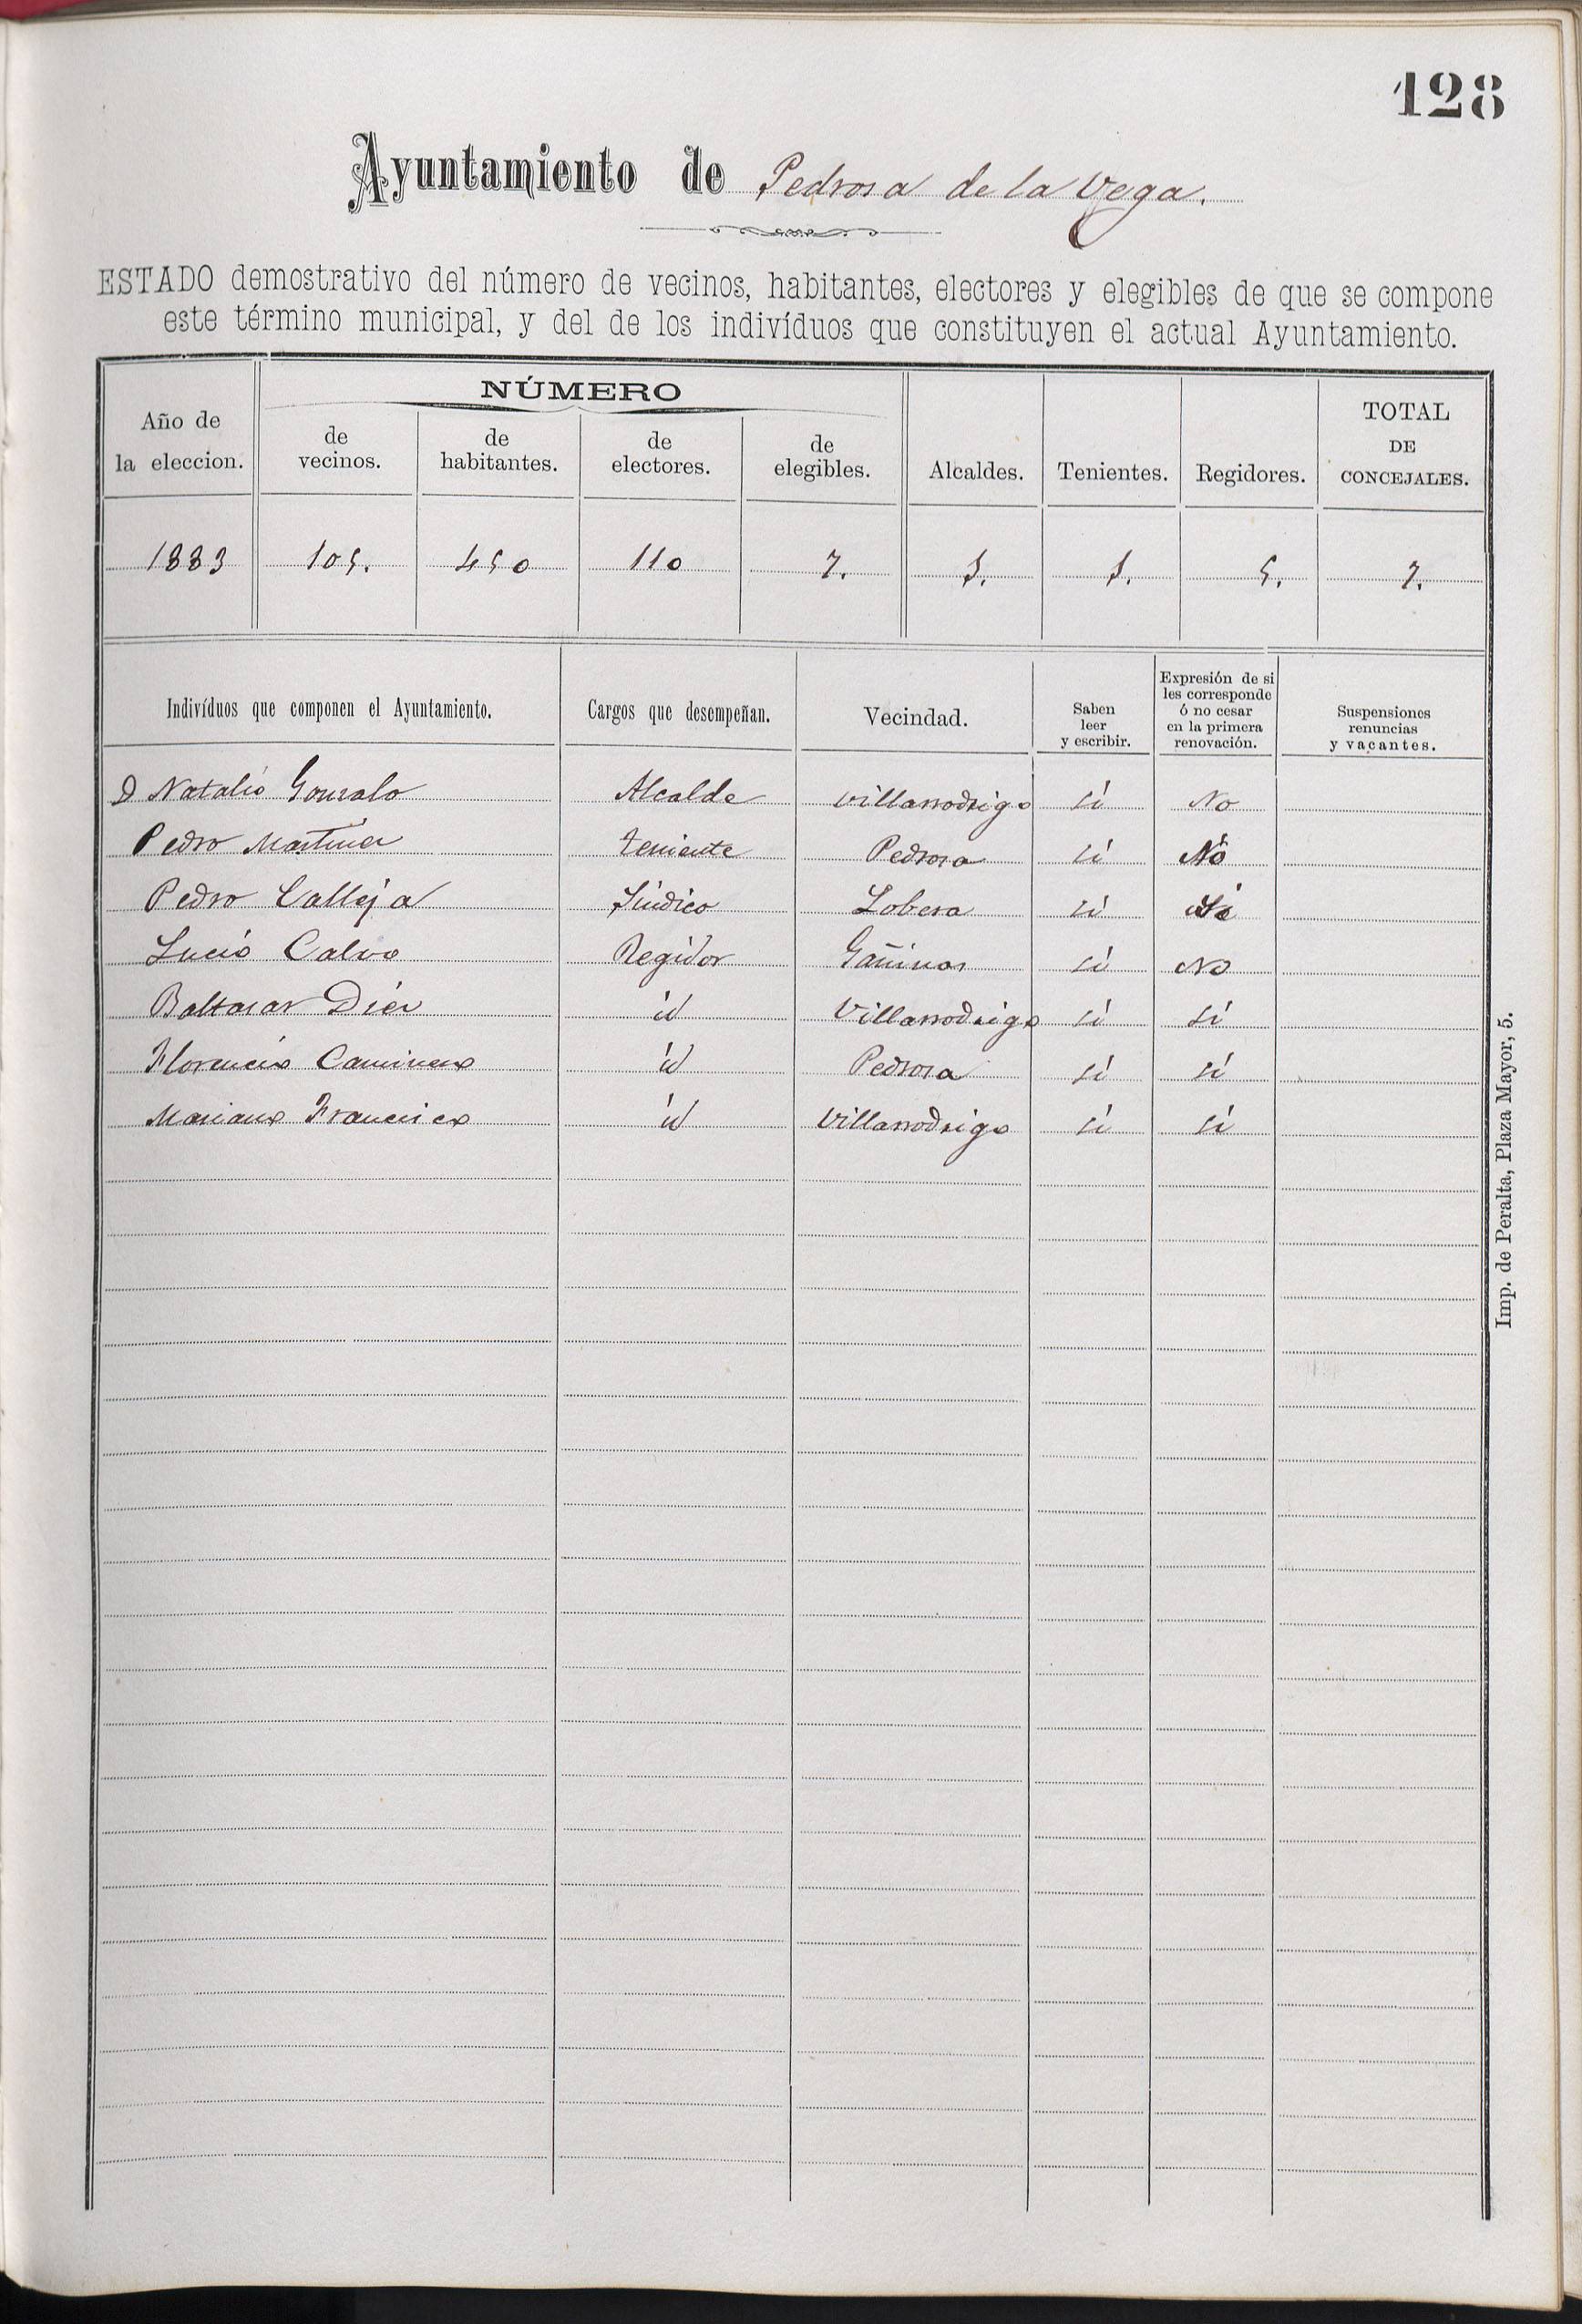 128
Ayuntamiento de Pedrosa de la Vega.
ESTADO demostrativo del número de vecinos, habitantes, electores y elegibles de que se compone
este término municipal, y del de los indivíduos que constituyen el actual Ayuntamiento.
Año de la eleccion. NÚMERO de vecinos. de habitantes. de electores. de elegibles. Alcaldes. Tenientes. Regidores. TOTAL DE CONCEJALES.
1883 105. 450 110 7. 1. 1. 5. 7.
Indivíduos que componen el Ayuntamiento. Cargos que desempeñan. Vecindad. Saben leer y escribir. Expresión de si les corresponde ó no cesar en la primera renovación. Suspensiones renuncias y vacantes.
D Natalio Gonzalo Alcalde Villarrodrigo sí No
Pedro Martinez teniente Pedrosa sí No
Pedro Calleja Síndico Lobera sí Sí
Lucio Calvo Regidor Gañinas sí No
Baltasar Diez id Villarrodrigo sí sí
Florencio Caminero id Pedrosa sí sí
Mariano Francisco id Villarrodrigo sí sí
Imp. de Peralta, Plaza Mayor, 5.